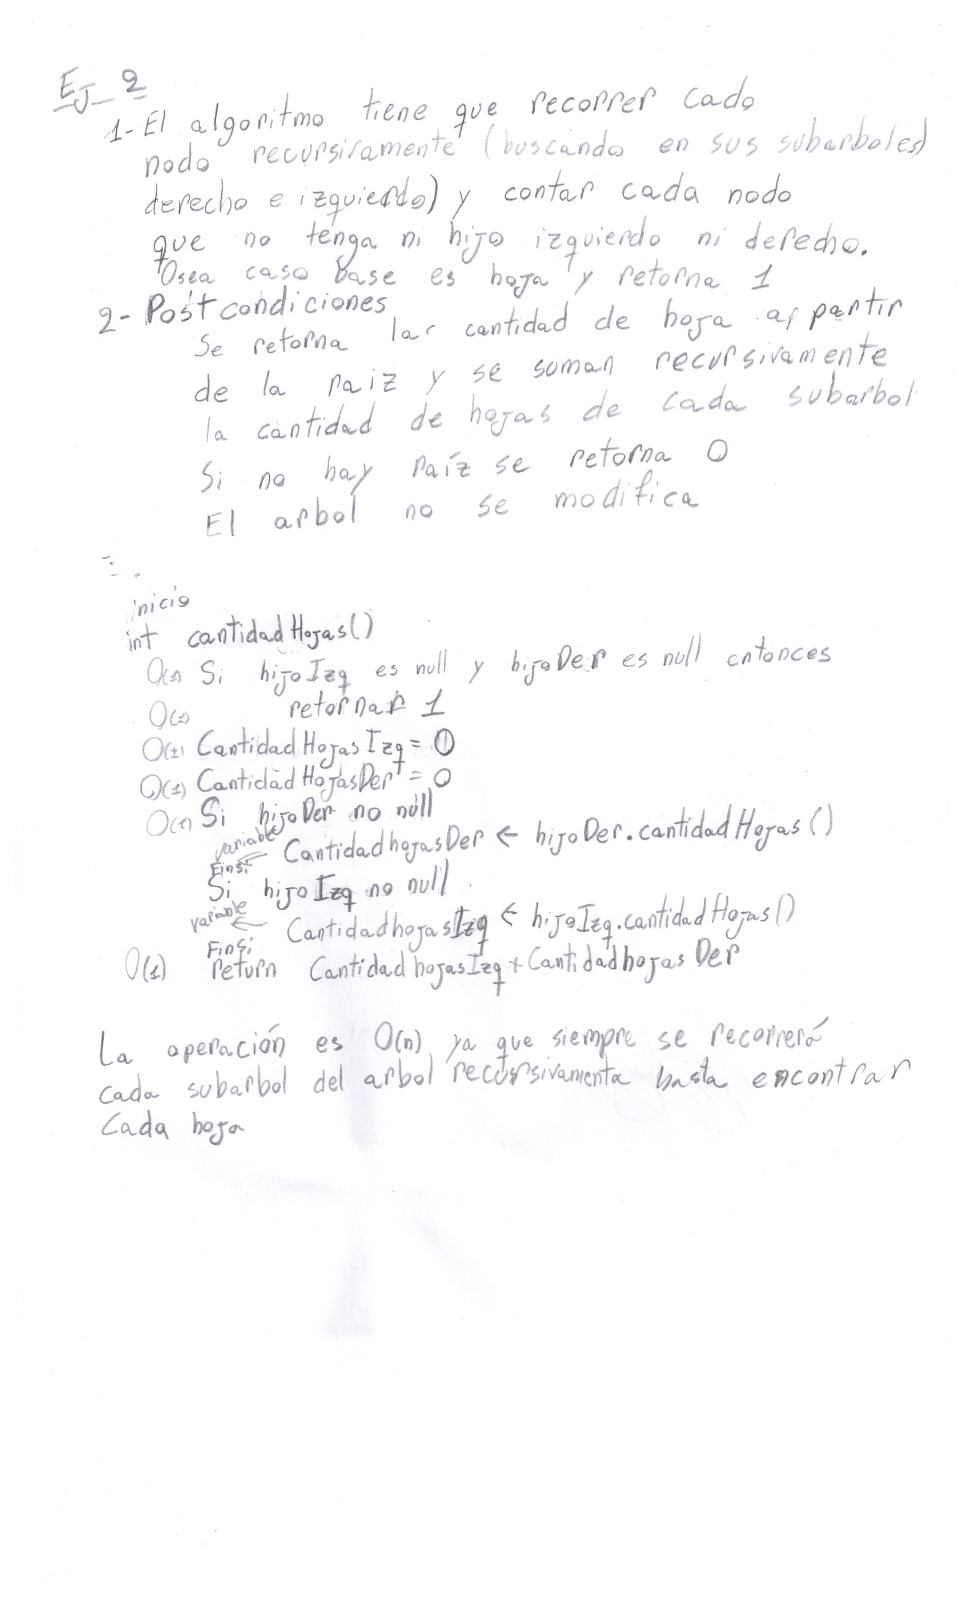 Ej_2
1- El algoritmo tiene que recorrer cado
nodo recursivamente (buscando en sus subarboles)
derecho e izquierdo) y contar cada nodo
que no tenga ni hijo izquierdo ni derecho.
Osea caso base es hoja y retorna 1
2- Postcondiciones
Se retorna lar cantidad de hoja a partir
de la raiz y se suman recursivamente
la cantidad de hojas de cada subarbol
Si no hay raíz se retorna 0
El arbol no se modifica
inicio
int cantidadHojas()
O(1) Si hijoIzq es null y hijoDer es null entonces
O(1) retornar 1
O(1) CantidadHojasIzq = 0
O(1) CantidadHojasDer = 0
O(1) Si hijoDer no null
variable ← CantidadhojasDer ← hijoDer.cantidadHojas()
Finsi
Si hijoIzq no null
variable ← CantidadhojasIzq ← hijoIzq.cantidadHojas()
Finsi
O(1) return CantidadhojasIzq + CantidadhojasDer
La operación es O(n), ya que siempre se recorrerá
cada subarbol del arbol recursivamenta hasta encontrar
Cada hoja